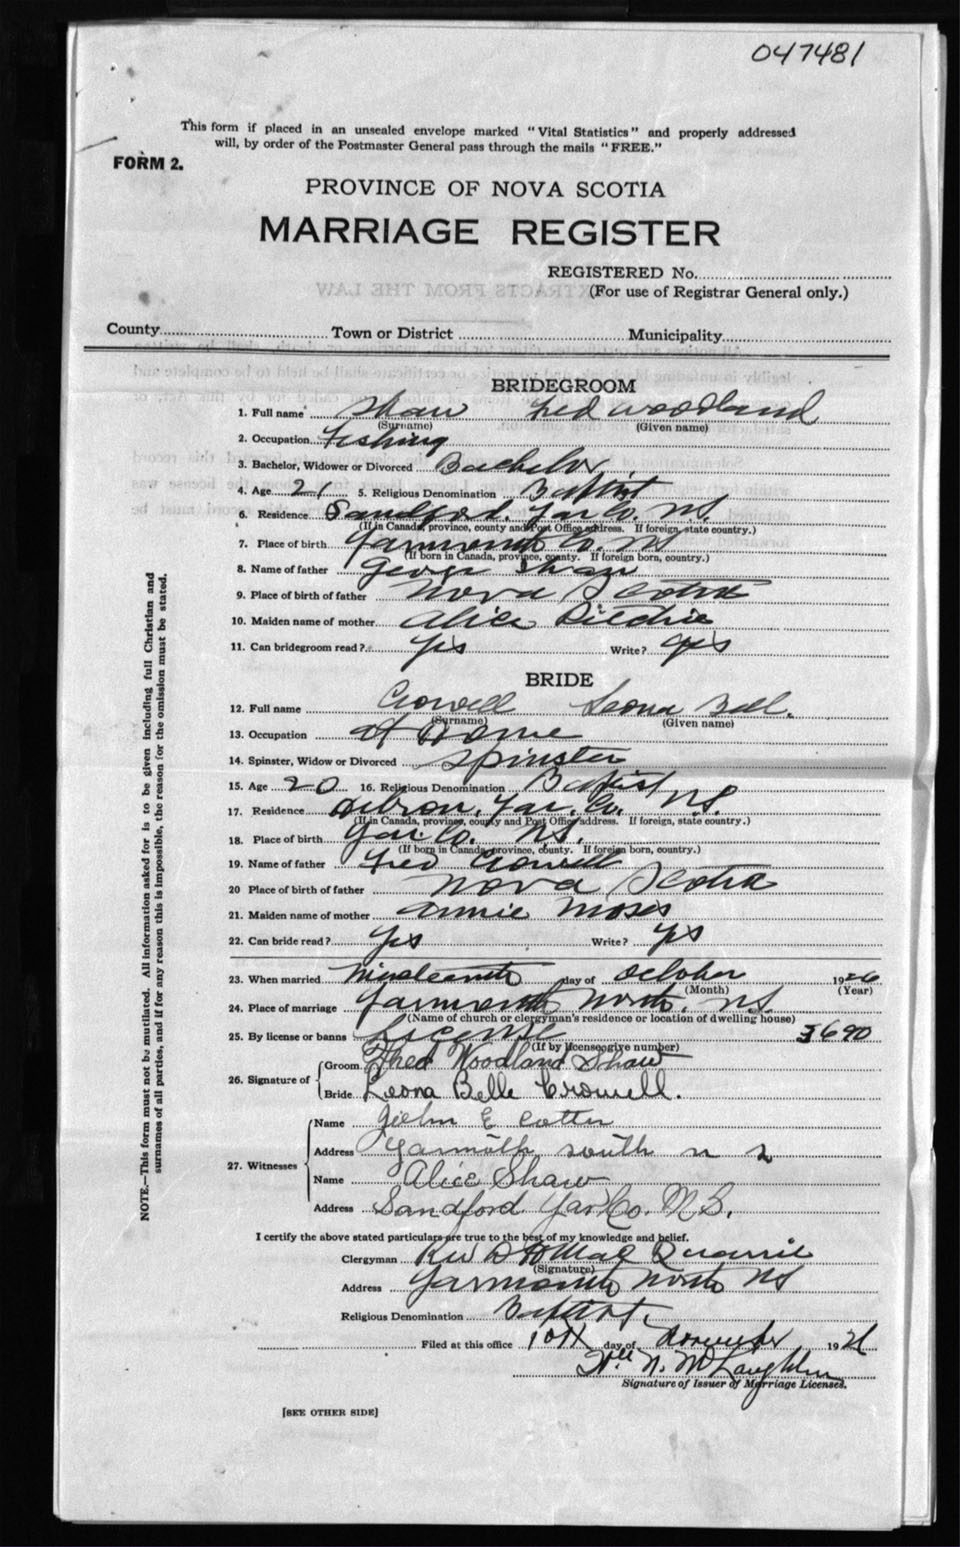 047481
This form if placed in an unsealed envelope marked "Vital Statistics" and properly addressed
will, by order of the Postmaster General pass through the mails "FREE."
FORM 2.
PROVINCE OF NOVA SCOTIA
MARRIAGE REGISTER
REGISTERED No.
(For use of Registrar General only.)
County Town or District Municipality
BRIDEGROOM
1. Full name Shaw Fred Woodland
(Surname) (Given name)
2. Occupation Fishing
3. Bachelor, Widower or Divorced Bachelor
4. Age 21 5. Religious Denomination Baptist
6. Residence Sandford. Yar Co. NS
(If in Canada, province, county and Post Office address. If foreign, state country.)
7. Place of birth Yarmouth Co. NS
(If born in Canada, province, county. If foreign born, country.)
8. Name of father George Shaw
9. Place of birth of father Nova Scotia
10. Maiden name of mother Alice
11. Can bridegroom read? Yes Write? Yes
BRIDE
12. Full name Crowell Leona Bell.
(Surname) (Given name)
13. Occupation At Home
14. Spinster, Widow or Divorced Spinster
15. Age 20 16. Religious Denomination Baptist
17. Residence Hebron, Yar. Co. NS.
(If in Canada, province, county and Post Office address. If foreign, state country.)
18. Place of birth Yar. Co. NS.
(If born in Canada, province, county. If foreign born, country.)
19. Name of father Fred Crowell
20 Place of birth of father Nova Scotia
21. Maiden name of mother Annie Moses
22. Can bride read? Yes Write? Yes
23. When married Nineteenth day of October 1926
(Month) (Year)
24. Place of marriage Yarmouth North. NS.
(Name of church or clergyman's residence or location of dwelling house)
25. By license or banns License 3690
(If by license give number)
26. Signature of
Groom Fred Woodland Shaw
Bride Leona Belle Crowell.
27. Witnesses
Name John E Cotter
Address Yarmoth south n s
Name Alice Shaw
Address Sandford Yar Co. N.S.
I certify the above stated particulars are true to the best of my knowledge and belief.
Clergyman Rev
(Signature)
Address Yarmouth North NS
Religious Denomination Baptist.
Filed at this office 10th day of November 192
Wm N. McLaughlin
Signature of Issuer of Marriage Licenses.
[SEE OTHER SIDE]
NOTE.—This form must not be mutilated. All information asked for is to be given including full Christian and
surnames of all parties, and if for any reason this is impossible, the reason for the omission must be stated.